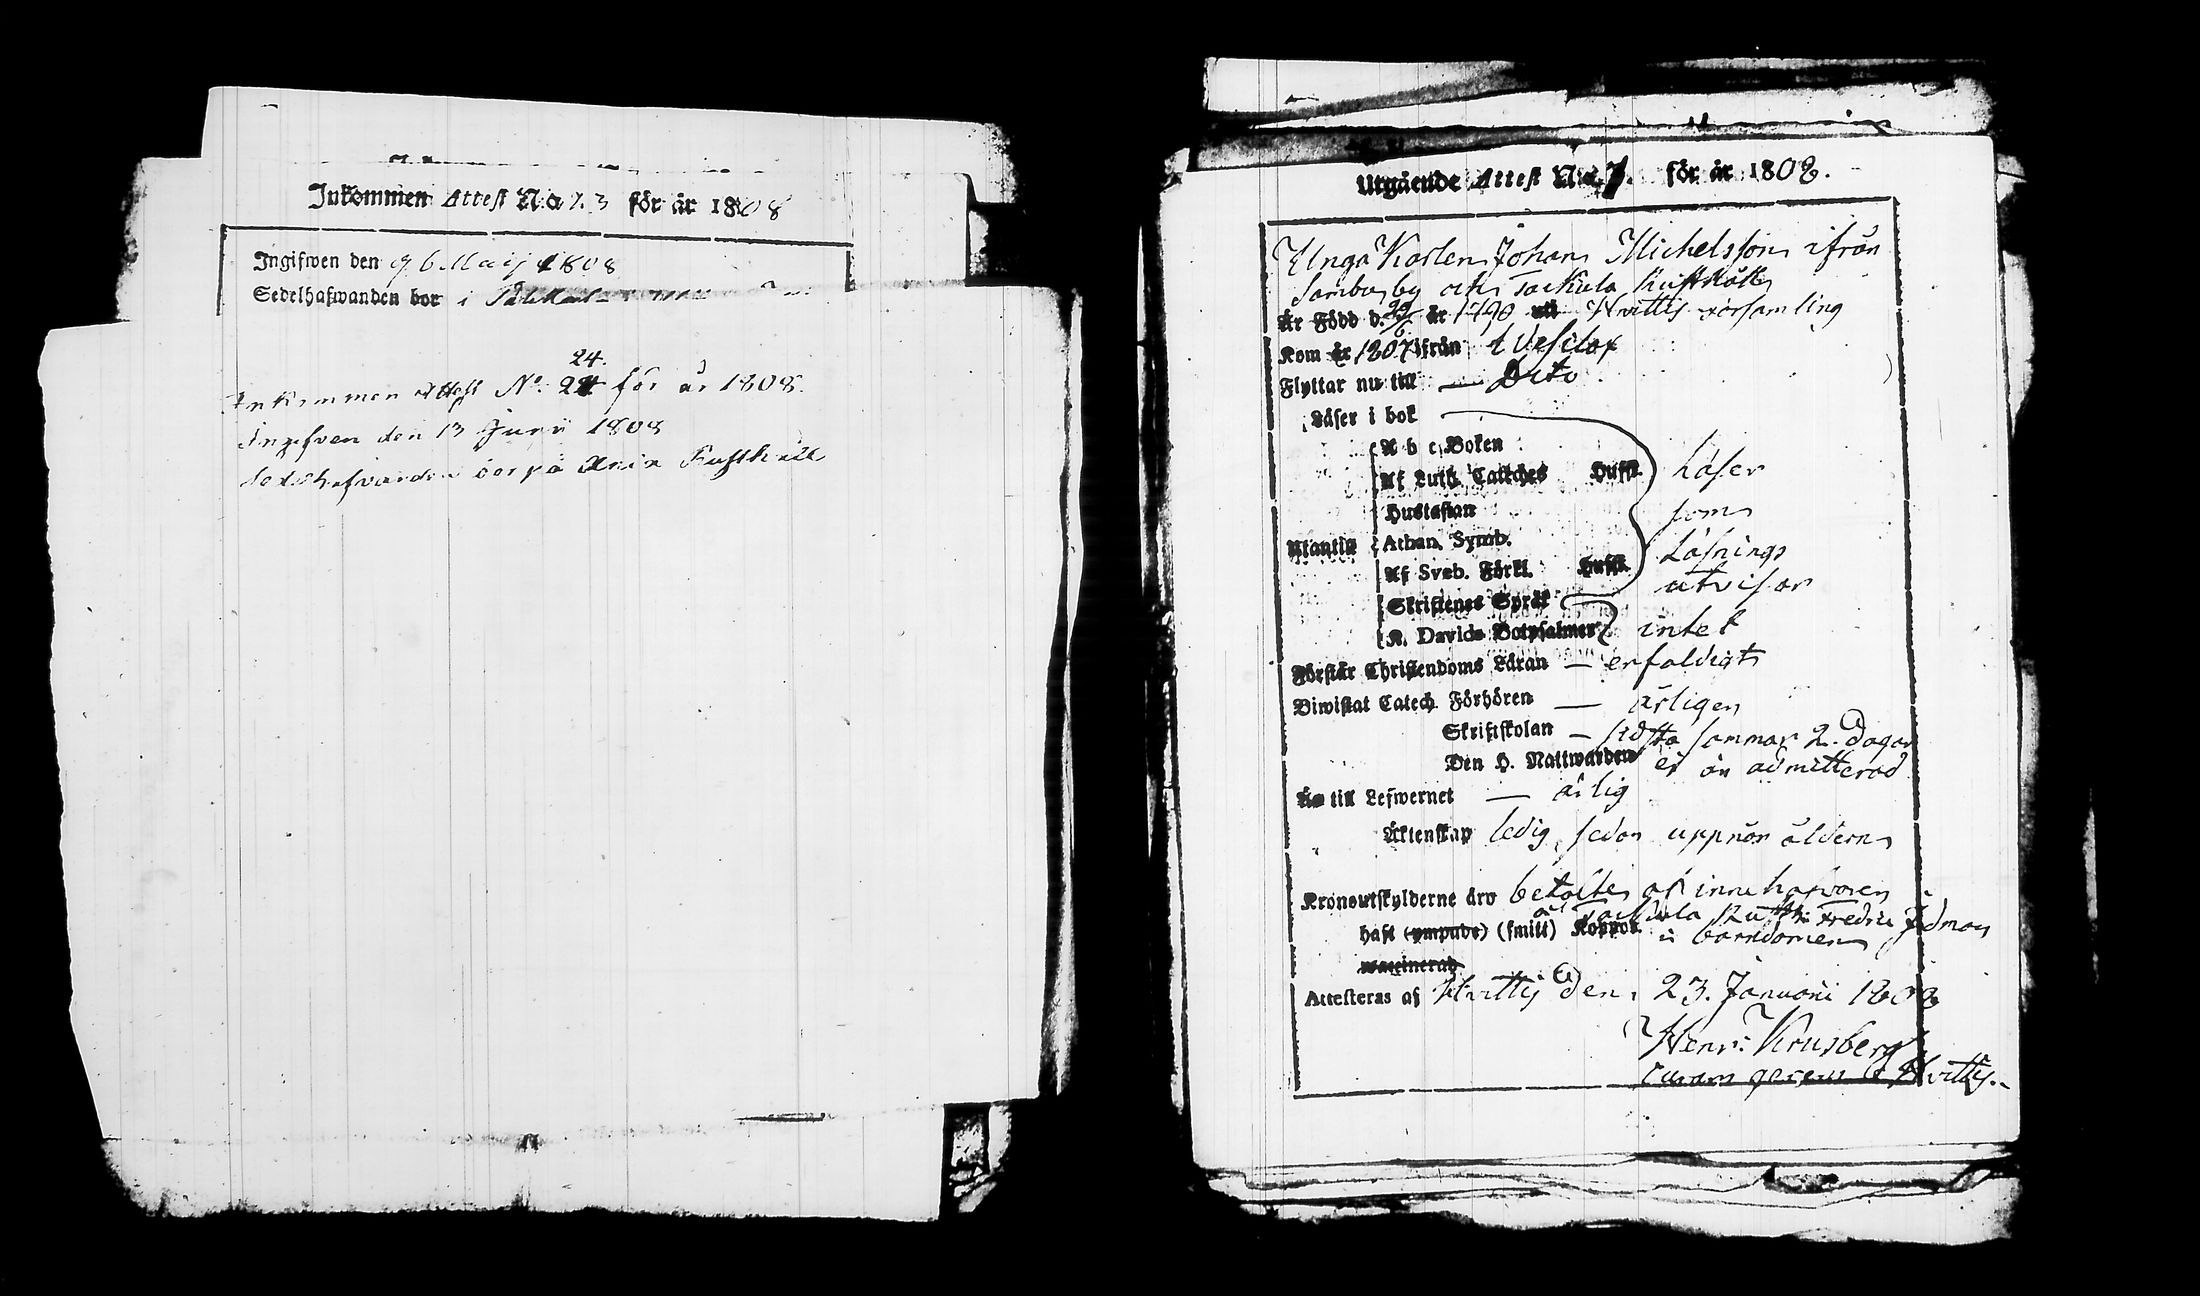 Inkommen Attest No 23 för år 1808
Ingifwen den 96 Maij 1808
Sedelhafwanden bor i
24.
Inkommen Attest No. 24 för år 1808.
Ingifven den 13 Junii 1808
Sedelhafvanden bor på Ania Rusthåll
Utgående Attest No. 7. för år 1808.
Unga Karlen Johan Michelsson ifrån
Sambu by och Tackula Rusthåll
Är Född d. 29/6 år 1790 uti Hvittis församling
Kom år 1807 ifrån Vesilax
Flyttar nu till — Dito
Läser i bok
A b c Boken
Af Luth. Catches Hufft. Läser
Hustaflan som
Utantill Athan. Symb. Läsnings
Af Sveb. Förkl. Hufft. utvisar
Skriftenes Språk
K. Davids Botpsalmer intet
Förstår Christendoms Läran — enfaldigt
Biwistat Catech. Förhören — årligen
Skriftskolan — sidsta sommar 2. dagar
Den H. Nattwarden ej än admitterad
Är till Lefwernet — ärlig
Äktenskap ledig, sedan uppnår åldern
Kronoutskylderne äro betalte af innehafvaren
af Tackula Rusth. Fredric Idman
haft (ympade) (smitt) Koppor i barndomen
waccinerad
Attesteras af Hvittis den 23. Januarii 1808
Henr: Krusberg
curam gerens i Hvittis.